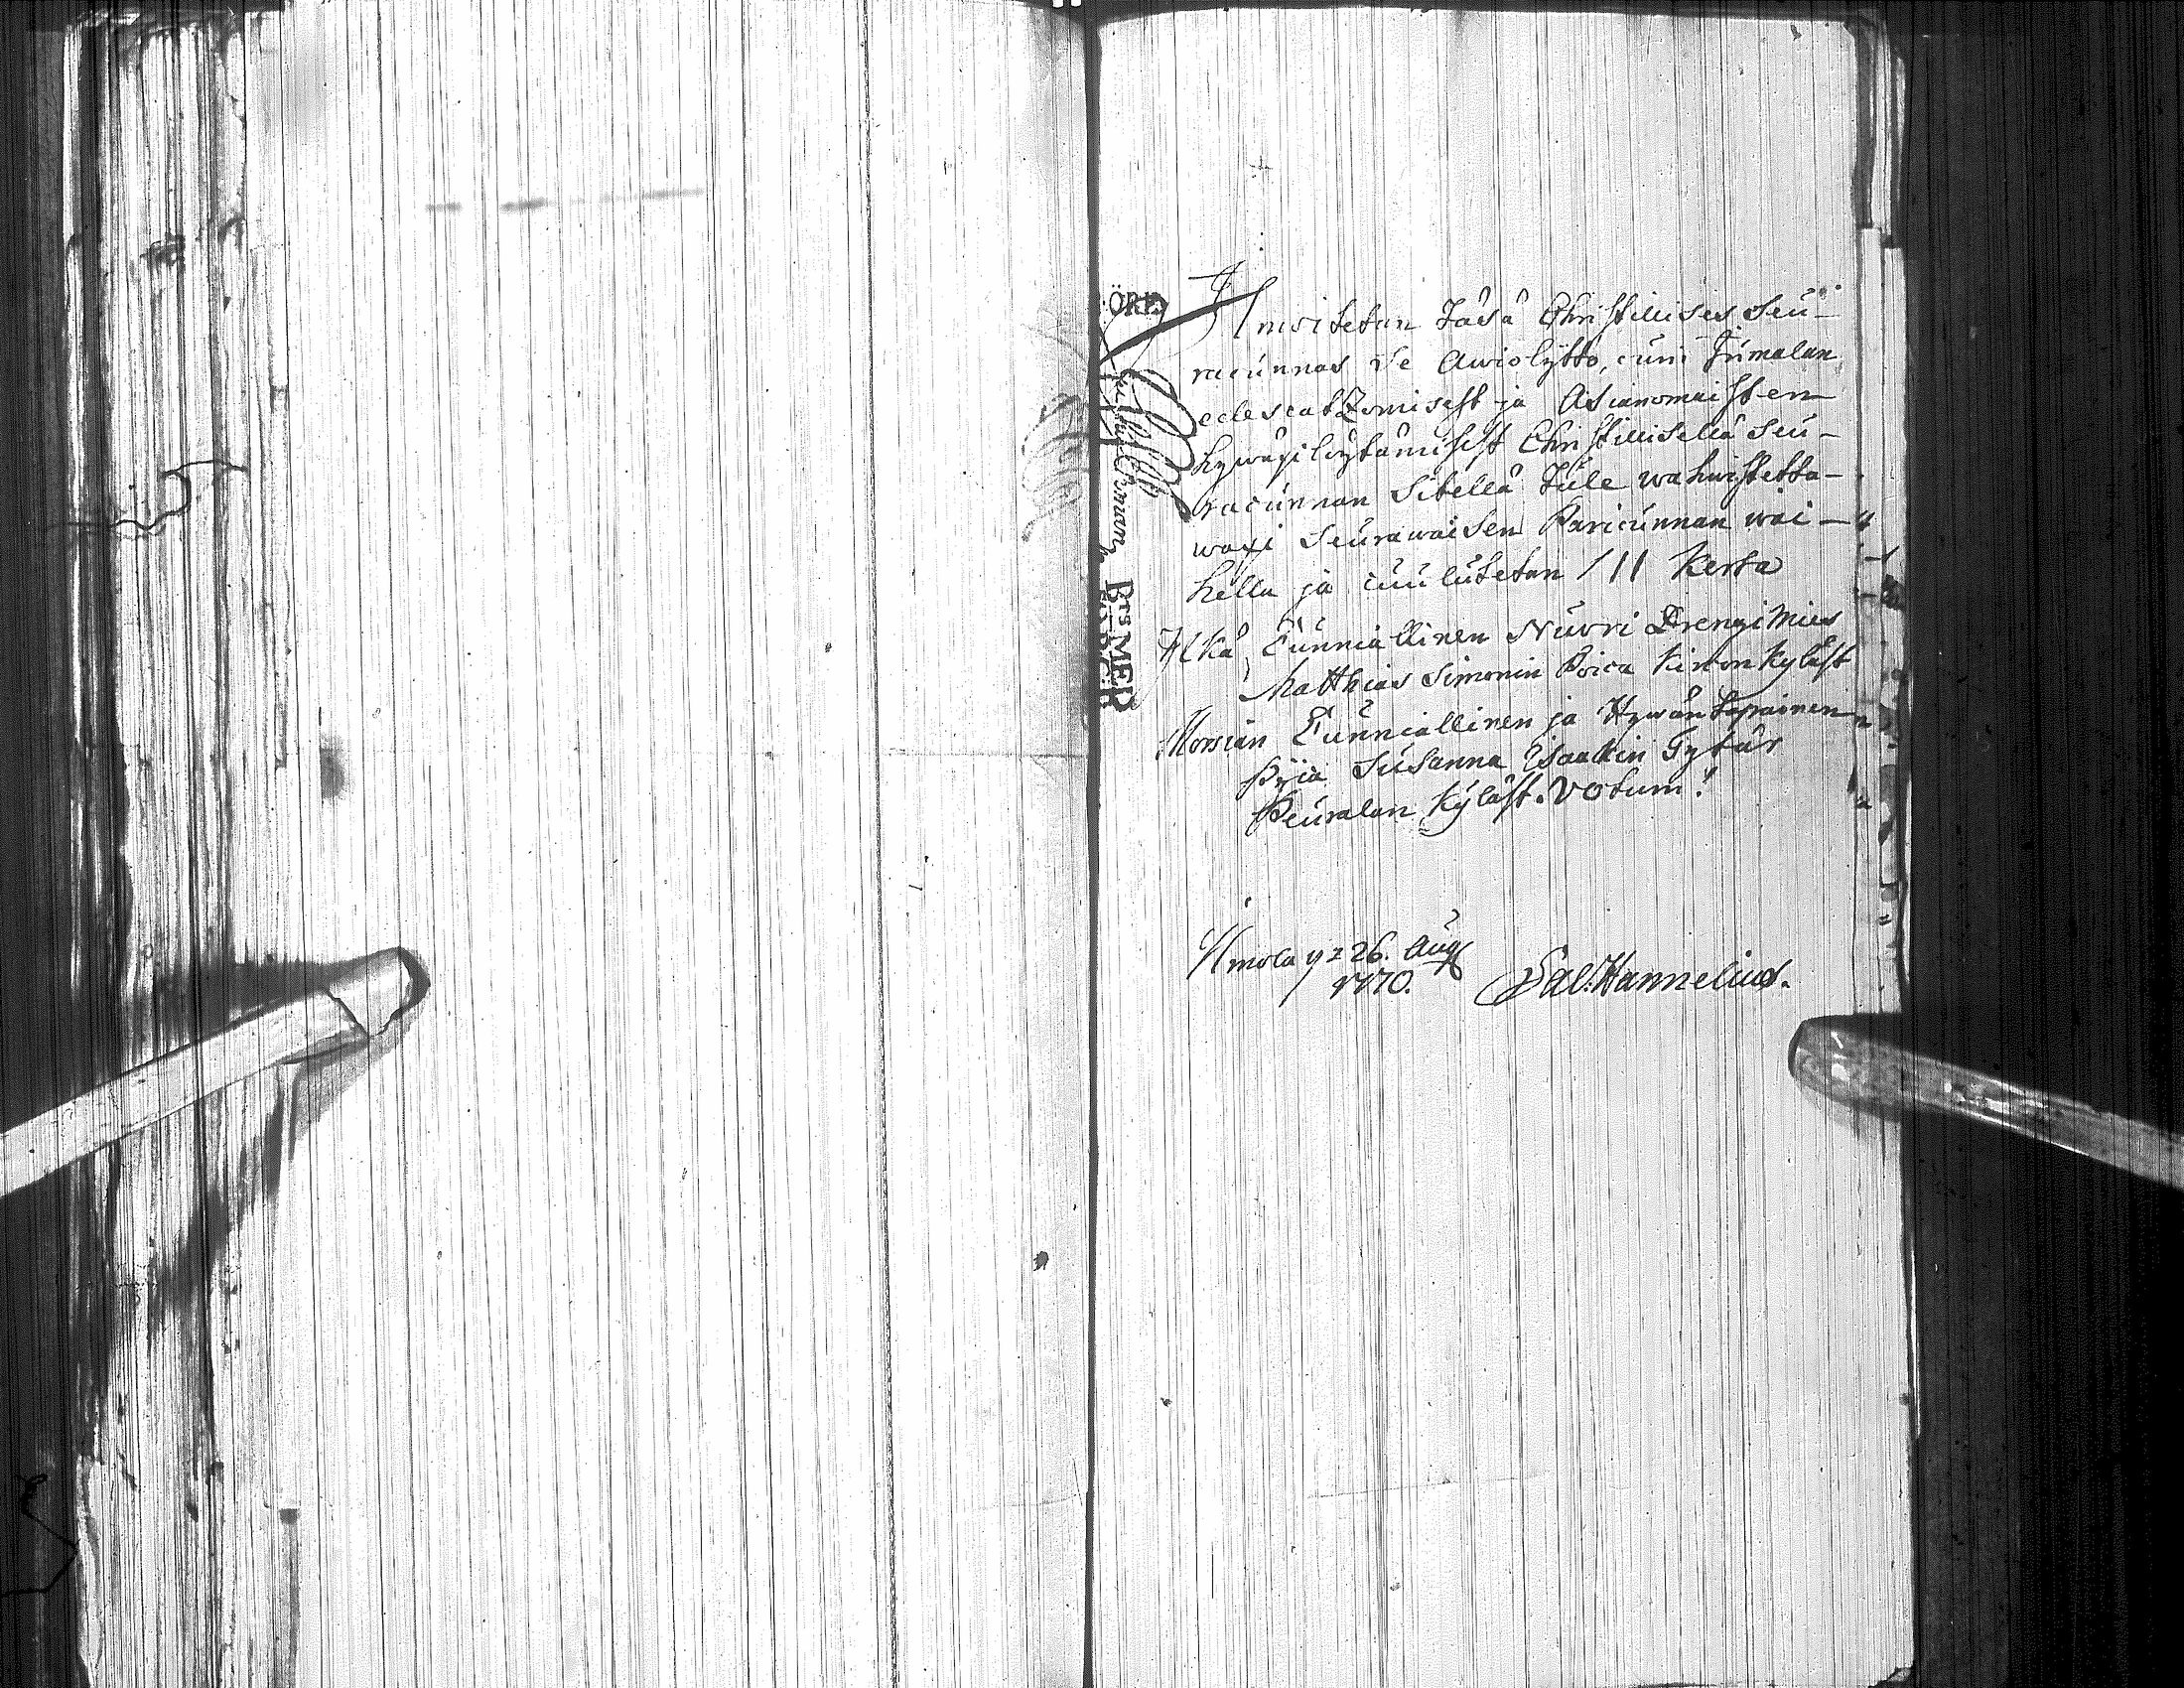 Ilmoitetan Täsä Christillises Seu-
racunnas se Awiolijtto, cuin Jumalan
edescatzomisest ja Asianomaisten
hywäxilöytämisest Christilisellä Seu-
racunnan Sitellä tule wahwistetta-
waxi Seurawaisen Paricunnan wäi-
hellä ja cuulutetan /// Kerta
Ylkä Cunniallinen Nuori Drengi Mies
Matthias Simonin Poica Kimon Kyläst
Morsian Cunniallinen ja Hywäntapainen
Pijca Susanna Isaakin Tytär
Peuralan Kyläst. Votum!
Ilmola 26. Aug
1770. Sal: Hannelius.
ÖRE
BTS MER